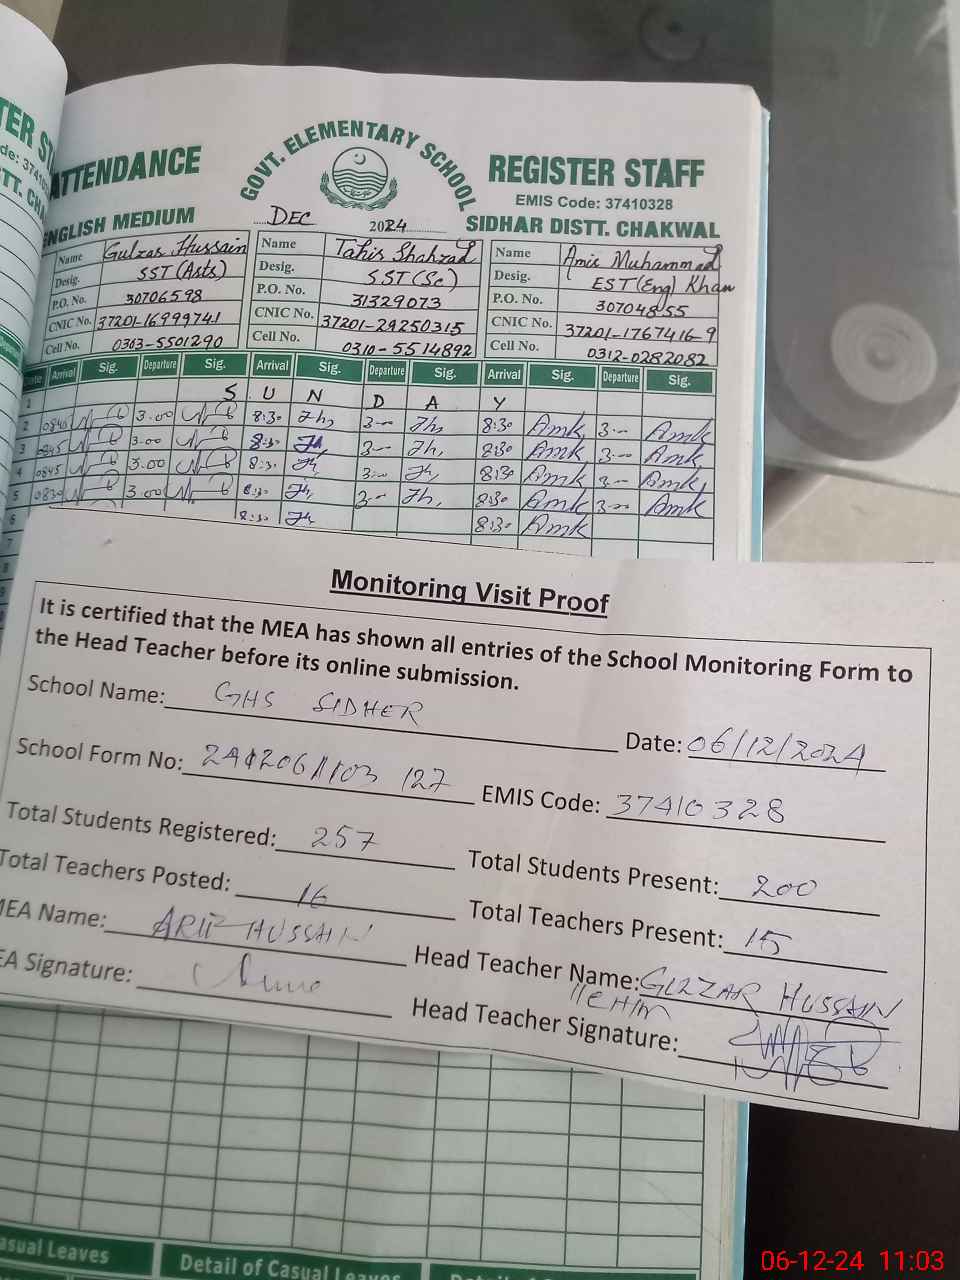 ATTENDANCE
GOVT. ELEMENTARY SCHOOL
REGISTER STAFF
EMIS Code: 37410328
ENGLISH MEDIUM
DEC 2024
SIDHAR DISTT. CHAKWAL
Name Gulzar Hussain
Desig. SST (Arts)
P.O. No. 30706598
CNIC No. 37201-1699974.1
Cell No. 0303-5501290
Name Tahir Shahzad
Desig. SST (Sc)
P.O. No. 31329073
CNIC No. 37201-29250315
Cell No. 0310-5514892
Name Amir Muhammad
Desig. EST (Eng) Khan
P.O. No. 30704855
CNIC No. 37201-1767416-9
Cell No. 0312-0282082
Arrival Sig. Departure Sig. Arrival Sig. Departure Sig. Arrival Sig. Departure Sig.
1 S U N D A Y
2 0840 3.00 8:30 3-- 8:30 Amk 3-- Amk
3 0845 3.00 8:30 3-- 8:30 Amk 3-- Amk
4 0845 3.00 8:30 3-- 8:30 Amk 3-- Amk
5 0830 3.00 8:30 3-- 8:30 Amk 3-- Amk
6 8:30 8:30 Amk
7
8
Monitoring Visit Proof
It is certified that the MEA has shown all entries of the School Monitoring Form to
the Head Teacher before its online submission.
School Name: GHS SIDHER
Date: 06/12/2024
School Form No: 127
EMIS Code: 37410328
Total Students Registered: 257
Total Students Present: 200
Total Teachers Posted: 16
Total Teachers Present: 15
MEA Name: HUSSAIN
Head Teacher Name: GULZAR HUSSAIN
EA Signature:
Head Teacher Signature:
asual Leaves
Detail of Casual Leaves
06-12-24 11:03